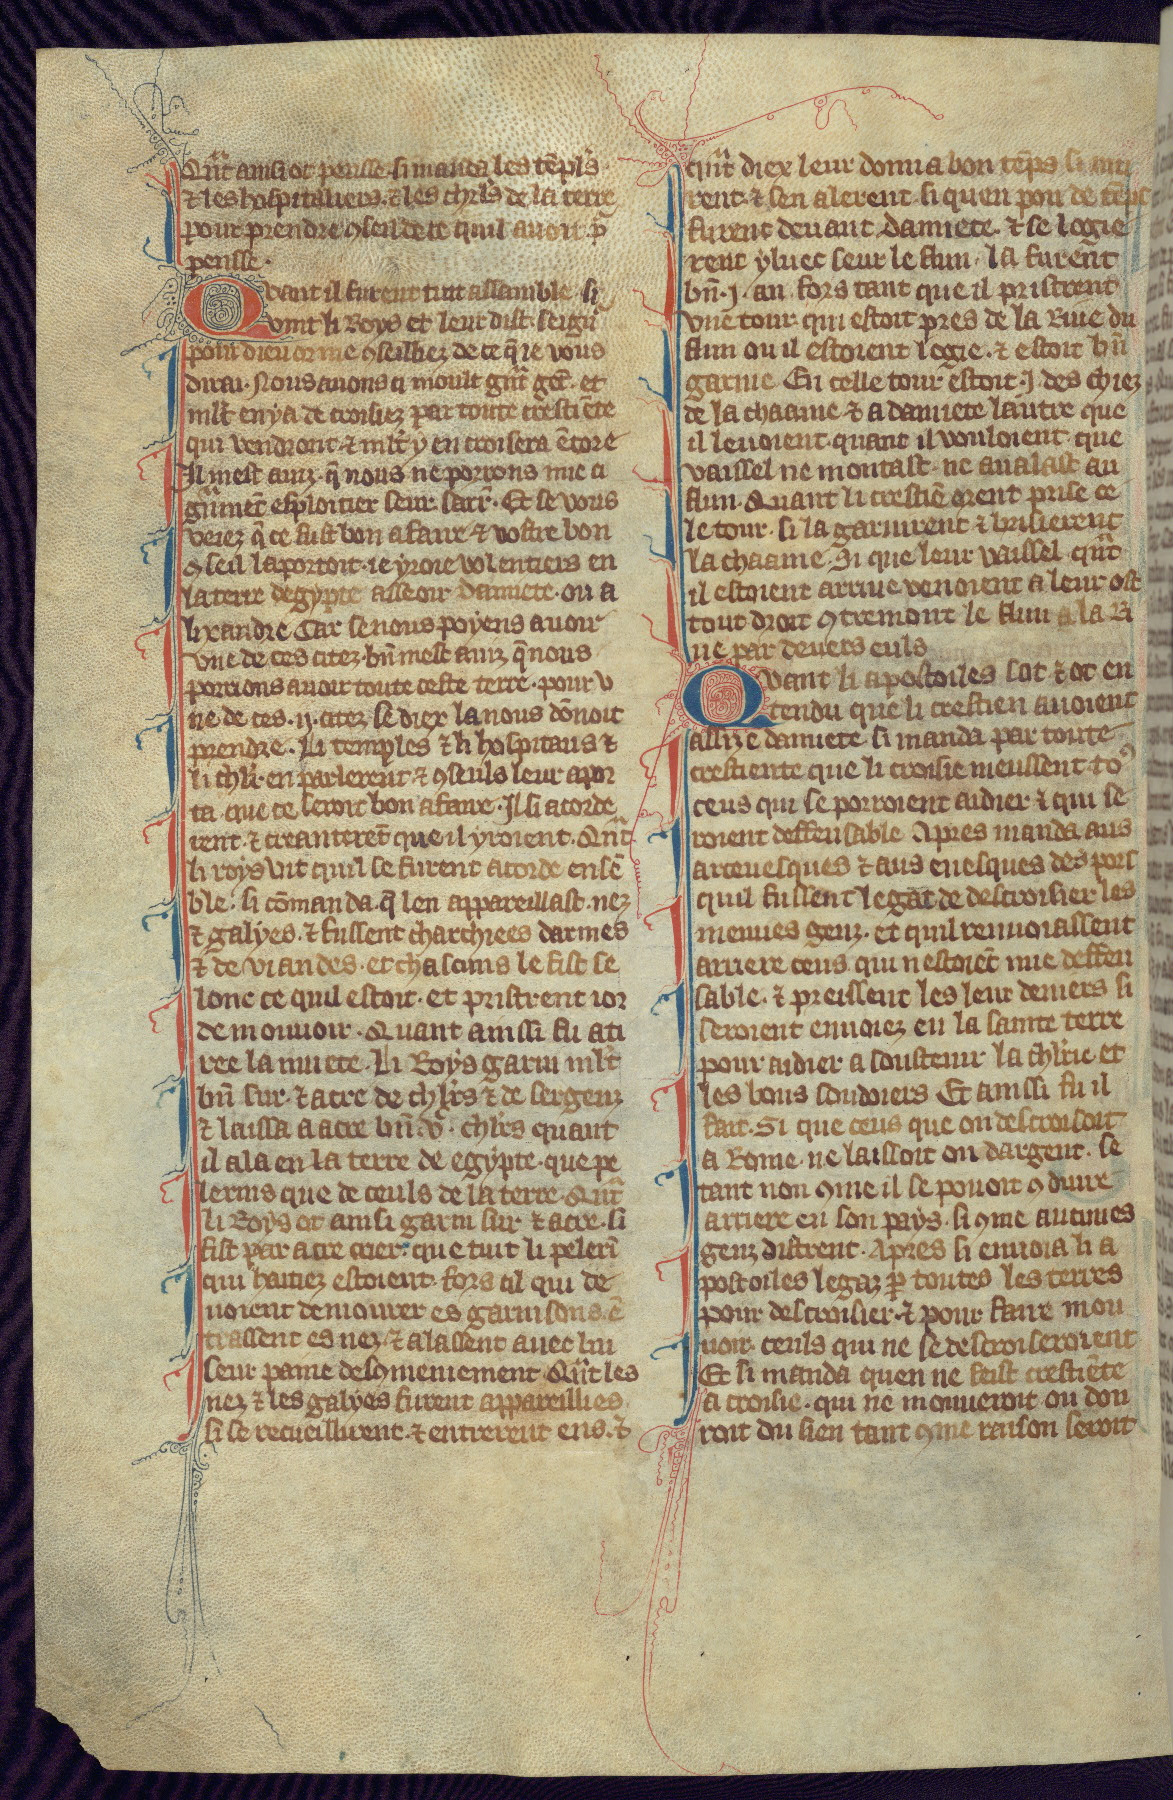 Qn̄t ainsi ot pense. si manda les tēpl's
⁊ les hospitaliers. ⁊ les chr̄ls de la terre
pour prendre ꝯseil de ce quil auoit p̄
pensse.
Quant il furent tuit assamble. si
vint li Roys et leur dist. seign̄
pour dieu or me ꝯseilliez de ce q̄ ie vous
dirai. Nous auons ci moult gn̄t gēt. et
ml̄t en ya de croisiez par toute crestiēte
qui vendront. ⁊ ml̄t y en croisera ēcore
Il mest auiz. q̄ nous ne porrons mie ci
gn̄mēt esploitier seur sarr. Et se vous
veiez q̄ ce fust bon a faire ⁊ vostre bon
ꝯseil laportoit. ie yroie volentiers en
la terre degypte asseoir damiete. ou a
lixandre Car se nous poyens auoir
vne de ces citez. bn̄ mest auiz q̄ nous
porrions auoir toute ceste terre. pour v
ne de ces .ij. citez. se diex la nous dōnoit
prendre. Li temples ⁊ li hospitaus ⁊
li chl̄r. en parlerent ⁊ ꝯseuls leur apor
ta. que ce seroit bon a faire. Il si acorde
rent. ⁊ creanterēt que il yroient. Qn̄t
li roys vit quil se furent acorde ensē
ble. si cōmanda. q̄ len appareillast. nez
⁊ galyes. ⁊ fussent charchiees darmes
⁊ de viandes. et chascuns le fist se
lonc ce quil estoit. et pristrent ior
de mouuoir. Quant ainssi fu ati
ree la muete. Li Roys garni ml̄t
bn̄ sur. ⁊ acre de chl̄rs ⁊ de sergenz
⁊ laissa a acre bn̄ .vͨ. chl̄rs quant
il ala en la terre de egypte. que pe
lerins que de ceuls de la terre. Qn̄t
li Roys ot ainsi garni sur ⁊ acre. si
fist par acre crier. que tuit li pelerī
qui haitiez estoient. fors cil qui de
uoient demourer es garnisons. ē
trassent es nez. ⁊ alassent auec lui
seur paine descōmeniement Qn̄t les
nez ⁊ les galyes furent appareillies
si se recueillirent. ⁊ entrerent ens. ⁊
qn̄t diex leur donna bon tēps si mu
rent. ⁊ sen alerent. si quen pou de tēps
furent deuant damiete. ⁊ se logie
rent yluec seur le flun. la furent
bn̄ .j. an. fors tant que il pristrent
vne tour. qui estoit pres de la Riue du
flun ou il estoient logie. ⁊ estoit bn̄
garnie. En celle tour estoit .j. des chiez
de la chaaine ⁊ a damiete lautre que
il leuoient. quant il vouloient. que
vaissel ne montast. ne aualast au
flun. Quant li crestiē orent prise ce
le tour. si la garnirent ⁊ brisierent
la chaaine. Si que leur vaissel. qn̄t
il estoient arriue venoient a leur ost
tout droit ꝯtremont le flun a la Ri
ue par deuers euls
Quant li apostoiles sot ⁊ ot en
tendu que li crestien auoient
assize damiete. si manda par toute
crestiente que li croisie meussent. toꝰ
ceus qui se porroient aidier ⁊ qui se
roient deffensable. Apres manda aus
arceuesques ⁊ aus euesques des pors
quil fussent legāt de descroisier les
menues genz. et quil renuoiassent
arriere ceus. qui nestoiēt mie deffen
sable. ⁊ preissent les leur deniers si
seroient enuoiez en la sainte terre
pour aidier a soustenir la chl̄rie. et
les bons soudoiers Et ainssi fu il
fait. Si que ceus que on descroisoit
a Rome. ne laissoit on dargent. se
tant non ꝯme il se pouoit ꝯduire
arriere en son pays. si ꝯme aucunes
genz distrent. Apres si enuoia li a
postoiles legaz p̄ toutes les terres
pour descroisier. ⁊ pour faire mou
uoir. ceuls qui ne se descroiseroient
Et si manda quen ne feist crestiēte
a croisie. qui ne mouueroit. ou don
roit du sien tant ꝯme raison seroit